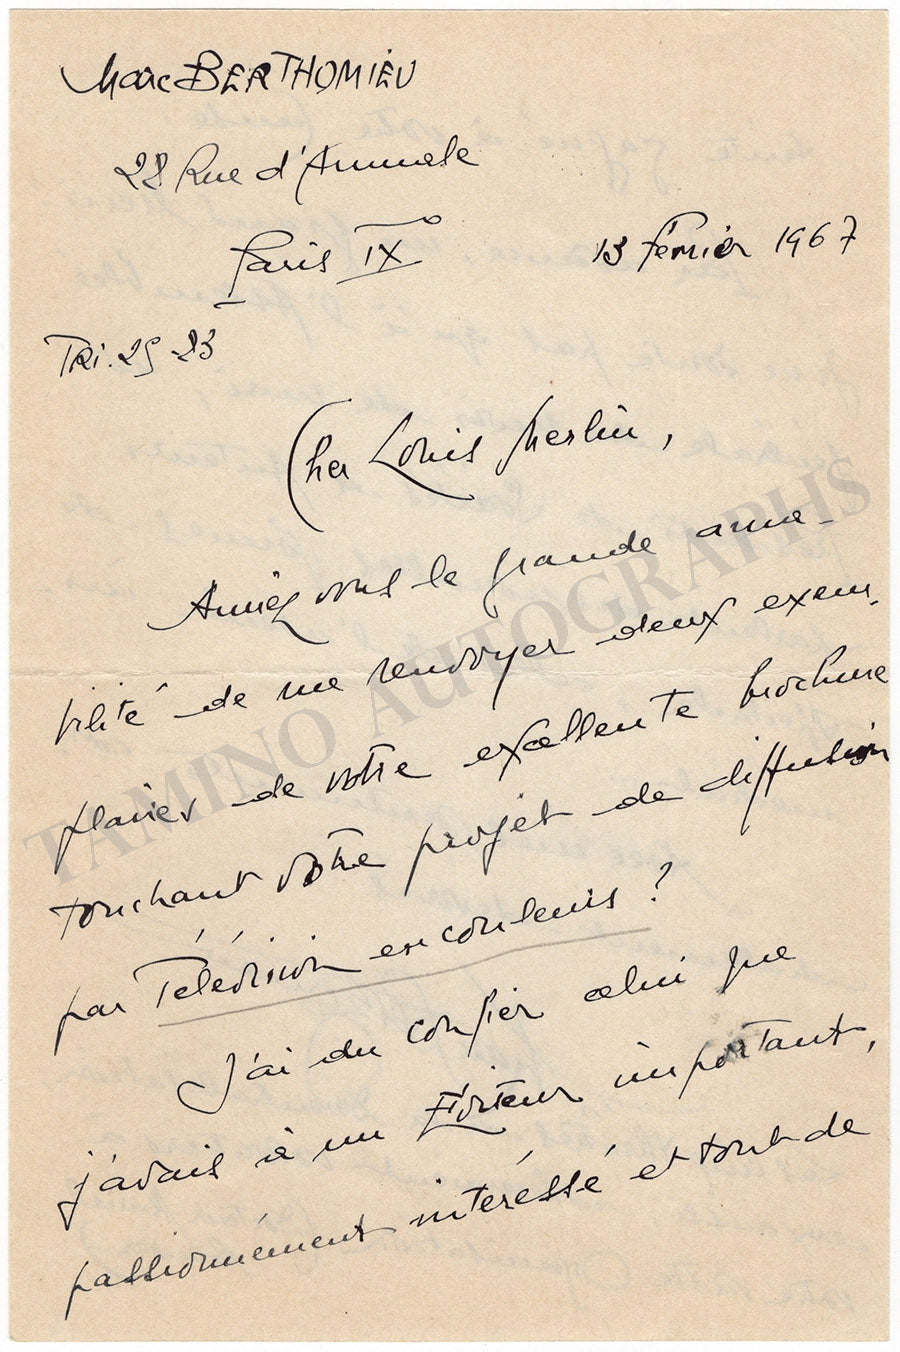 Marc BERTHOMIEU
28 Rue d'Aumale
Paris IX
13 février 1967
TRI. 25 23
Cher Louis Merlin,
Auriez vous la grande ama-
bilité de me renvoyer deux exem-
plaires de votre excellente brochure
touchant votre projet de diffusion
par Télévision en couleurs ?
J'ai du confier celui que
j'avais à un Editeur important,
passionnément intéressé et tout de
TAMINO AUTOGRAPHS